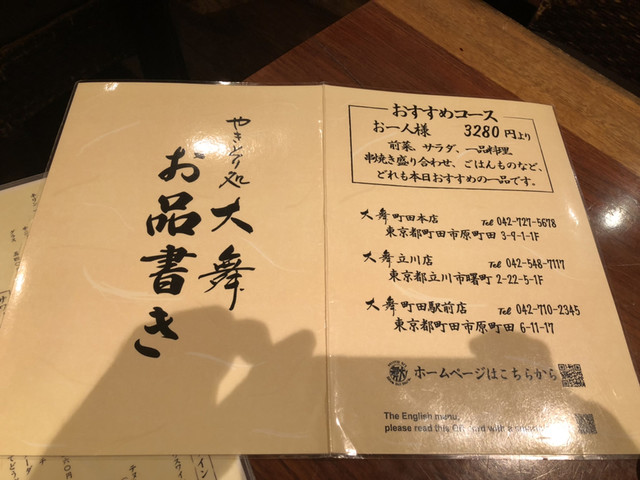 やきとり処
大舞
お品書き
おすすめコース
お一人様 3280円より
前菜、サラダ、一品料理
串焼き盛り合わせ、ごはんものなど、
どれも本日おすすめの一品です。
大舞町田本店 Tel 042-727-5678
東京都町田市原町田 3-9-1-1F
大舞立川店 Tel 042-548-7117
東京都立川市曙町 2-22-5-1F
大舞町田駅前店 Tel 042-710-2345
東京都町田市原町田 6-11-17
ホームページはこちらから
The English menu,
please read this QR with a